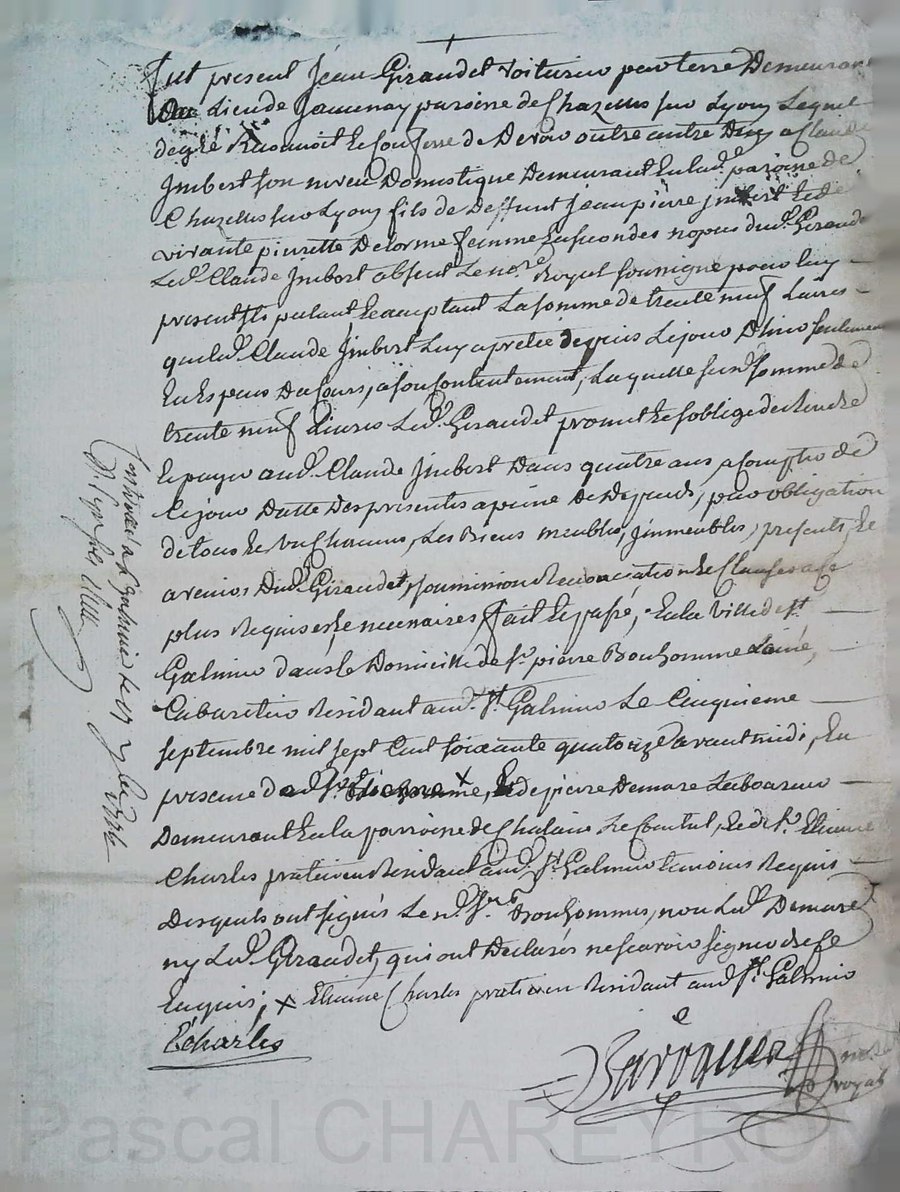 fut present Jean Giraudet voiturier par terre Demeurant
Au Lieu de Jamenay paroisse de Chazelles sur Lyon Lequel
degré Reconnoit Et Confesse de Devoir outre autre Deu a Claude
Imbert son neveu Domestique Demeurant En lad. paroisse de
Chazelles sur Lyon fils de Deffunt Jean pierre Imbert Et de
vivante pierrette Delorme femme En secondes nopces dud. Giraudet
Led. Claude Imbert absent Le nore. Royal soussigné pour luy
present stipulant Et acceptant La somme de trente neuf Livres
que led. Claude Imbert Luy a pretée depuis Le jour D'hier seulement
En Especes Du Cours, a son Contentement, Laquelle susd. somme de
trente neuf Livres Led. Giraudet promet Et s'oblige de Rendre
Et payer aud. Claude Imbert Dans quatre ans a Compter de
Ce jour Datte Des presentes a peine De Depends, par obligation
de tous Et un Chacuns, Les Biens meubles, Immeubles, presents, Et
avenirs Dud. Giraudet, soumission Renonciation Et Clauses a ce
plus Requises Et necessaires, fait Et passé, En la Ville de St.
Galmier dans le Domicille de Sr. pierre Bonhomme Lainé,
Cabaretier Residant aud. St. Galmier Le Cinquieme
septembre mil sept Cent soixante quatorze avant midi, En
presence dud. Sr. x Et de pierre Demare Laboureur
Demeurant En la parroisse de Chalain Le Comtal, Et de Sr. Etienne
Charles praticien Residant aud. St. Galmier temoins Requis
Desquels ont signés Led. Sr. Bonhomme, non Led. Demare
ny Led. Giraudet, qui ont Declarés ne scavoir signer de ce
Enquis; x Etienne Charles praticien Residant aud. St. Galmier
ECharles
nore.
royal
a St Galmier Le 17 7bre 1774
Pascal CHAREYRON